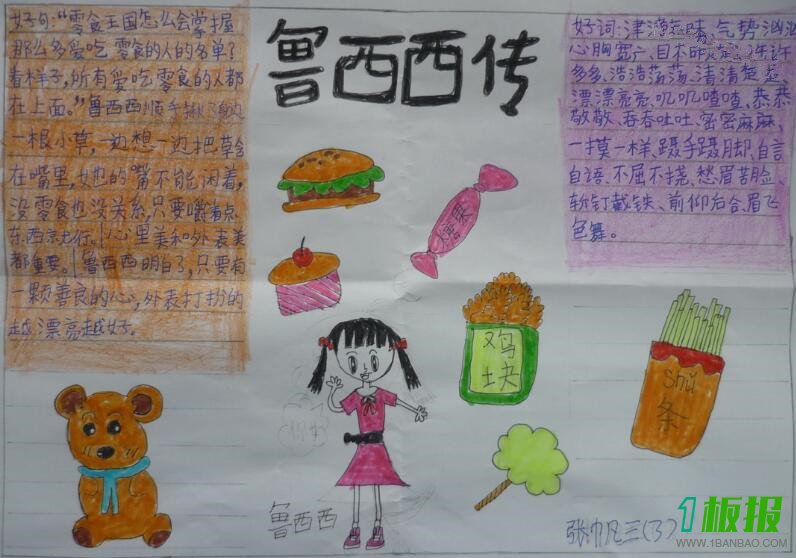 鲁西西传
好句:“零食王国怎么会掌握
那么多爱吃零食的人的名单?
看样子,所有爱吃零食的人都
在上面。”鲁西西顺手揪了身边
一根小草,一边想一边把草含
在嘴里,她的嘴不能闲着,
没零食也没关系,只要嚼着点
东西就行。心里美和外表美
都重要。鲁西西明白了,只要有
一颗善良的心,外表打扮的
越漂亮越好。
好词:津津有味、气势汹汹
心胸宽广、目不
多多、浩浩荡荡、清清楚楚
漂漂亮亮、叽叽喳喳、恭恭
敬敬、吞吞吐吐、密密麻麻、
一摸一样、蹑手蹑脚、自言
自语、不屈不挠、愁眉苦脸、
斩钉截铁、前仰后合、眉飞
色舞。
鸡
块
shǔ
条
你好
鲁西西
三(3)
1板报
WWW.1BANBAO.COM